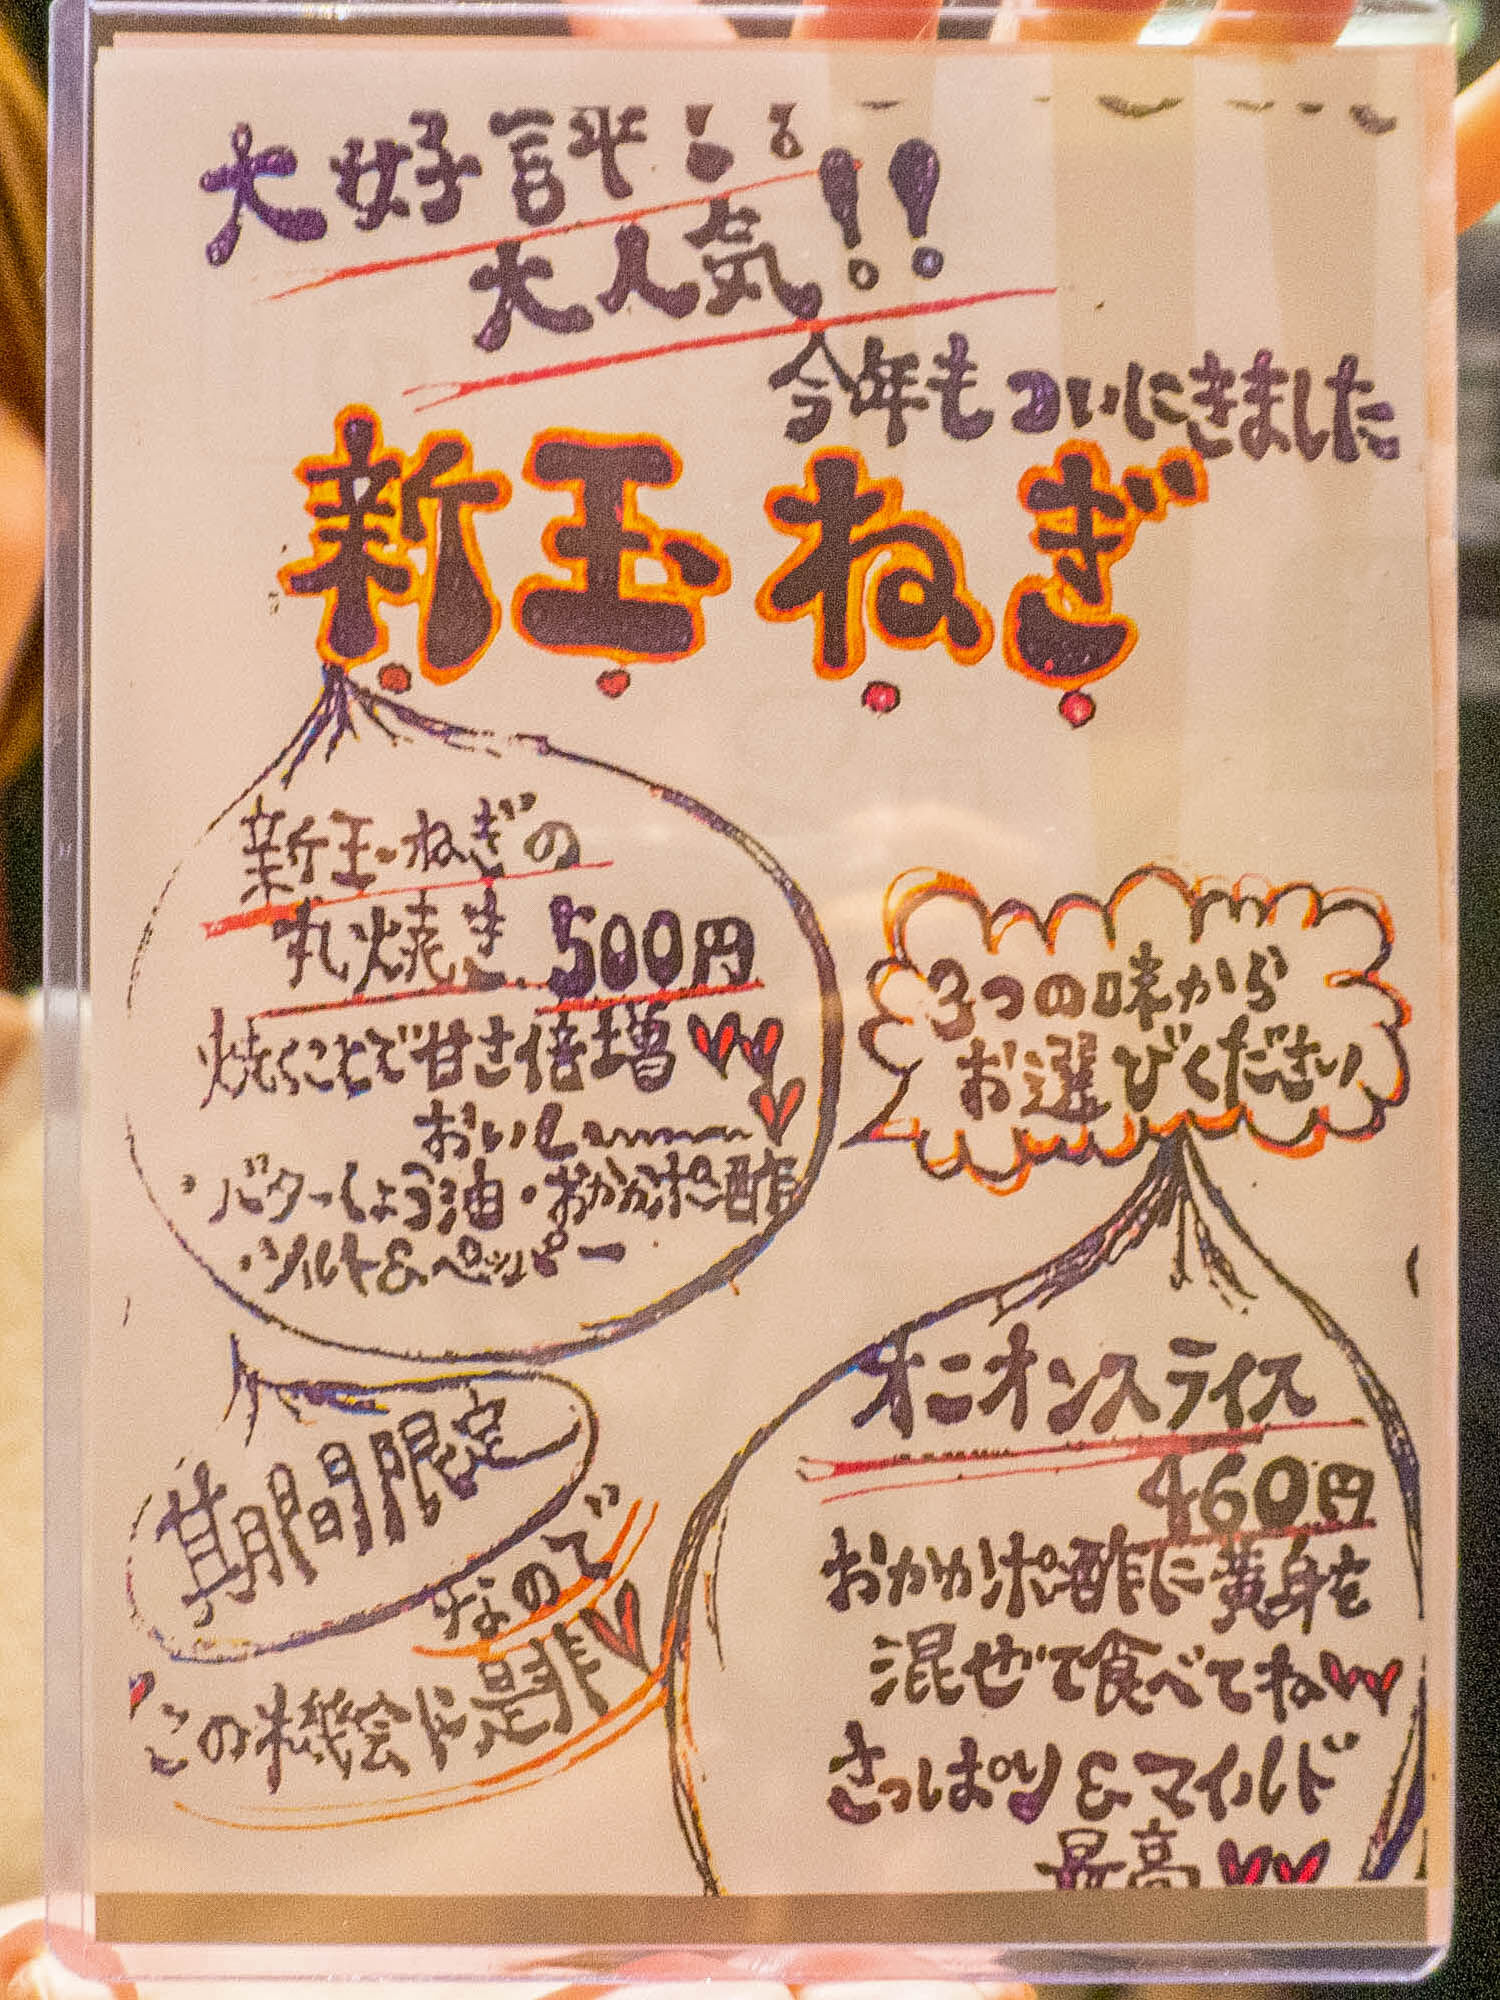 大好評!!
大人気!!
今年もついにきました
新玉ねぎ
新玉ねぎの
丸焼き 500円
焼くことで甘さ倍増
おいしい〜〜〜
・バターしょう油・おかかポン酢
・ソルト&ペッパー
3つの味から
お選びください
オニオンスライス
460円
おかかポン酢に黄身を
混ぜて食べてね
さっぱり&マイルド
最高
期間限定
なので
この機会に是非